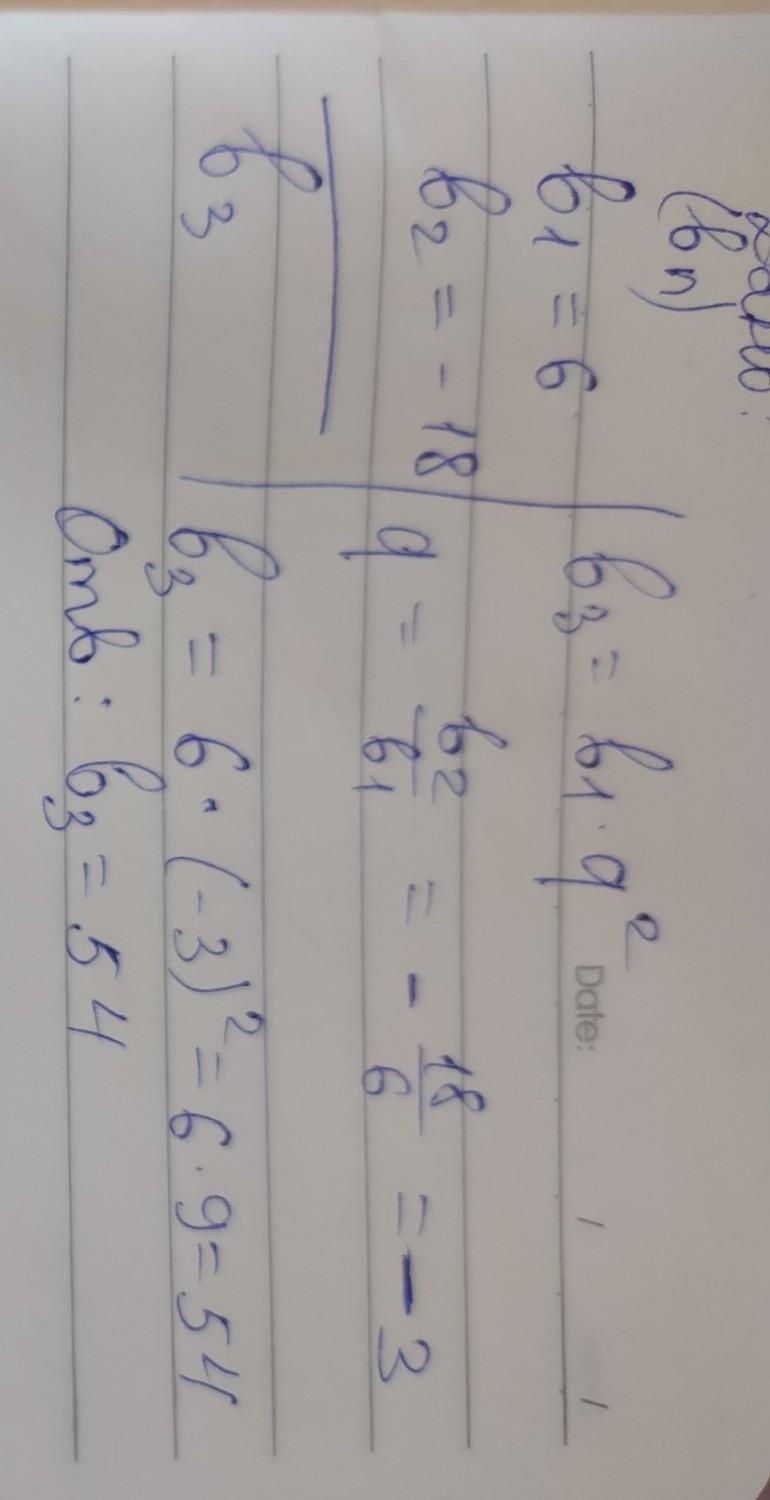 Дано:
(bn)
b1 = 6
b2 = - 18
b3
Date: / /
b3 = b1 · q²
q = b2/b1 = - 18/6 = - 3
b3 = 6 · (-3)² = 6 · 9 = 54
Отв: b3 = 54